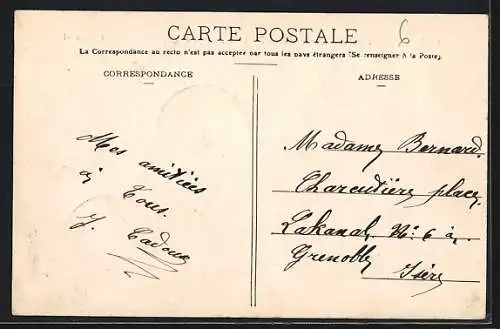 CARTE POSTALE
6
La Correspondance au recto n'est pas acceptée par tous les pays étrangers (Se renseigner à la Poste)
CORRESPONDANCE
ADRESSE
Mes amitiées
à Tous.
J. Cadoux
Madame Bernard.
Charcutière place
Lakanal, No: 6 à
Grenoble
Isère